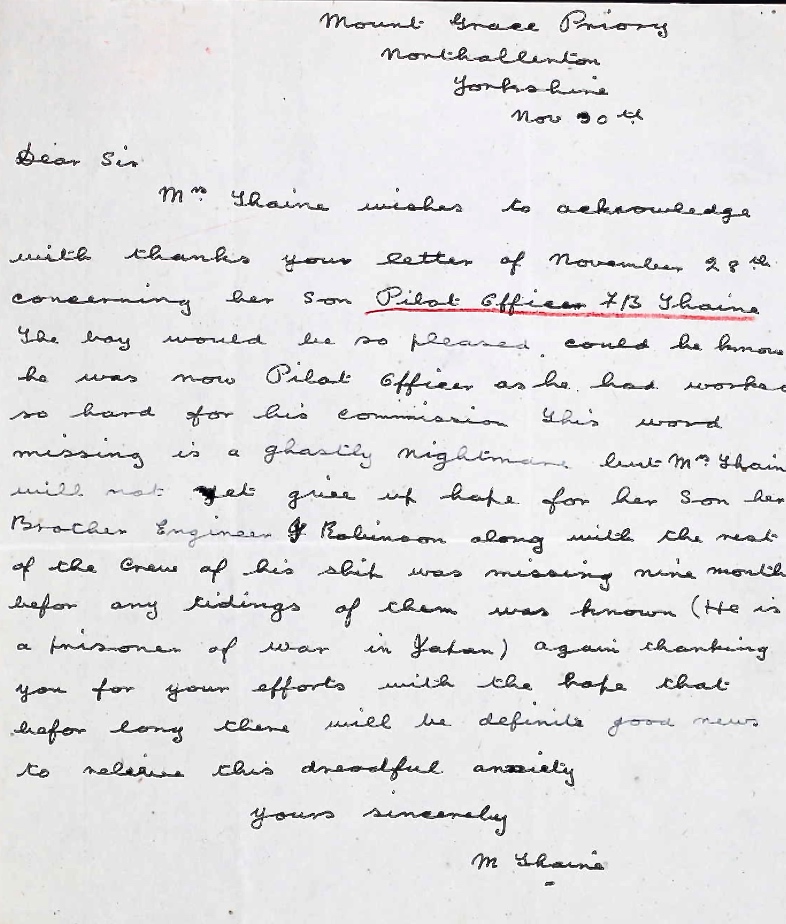 Mount Grace Priory
Northallerton
Yorkshire
Nov 30th
Dear Sir
Mrs. Thaine wishes to acknowledge
with thanks your letter of November 28th
concerning her Son Pilot Officer T/B Thaine
The boy would be so pleased could he know
he was now Pilot Officer as he had worked
so hard for his commission This word
missing is a ghastly nightmare but Mrs Thain
will not yet give up hope for her Son her
Brother Engineer J Robinson along with the rest
of the Crew of his ship was missing nine month
befor any tidings of them was known (He is
a prisoner of war in Japan) again thanking
you for your efforts with the hope that
befor long there will be definite good news
to releive this dreadful anxiety
yours sincerely
M Thaine